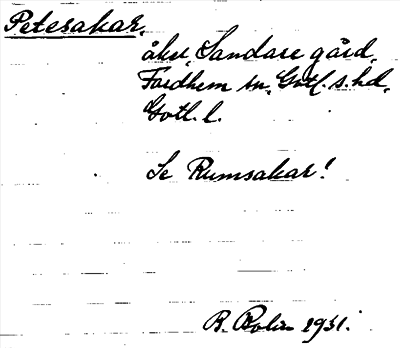 Petesakar,
åkr, Sandare gård,
Fardhem sn, Gotl. s. hd,
Gotl. l.
Se Rumsakar!
B. Bolin 1931.